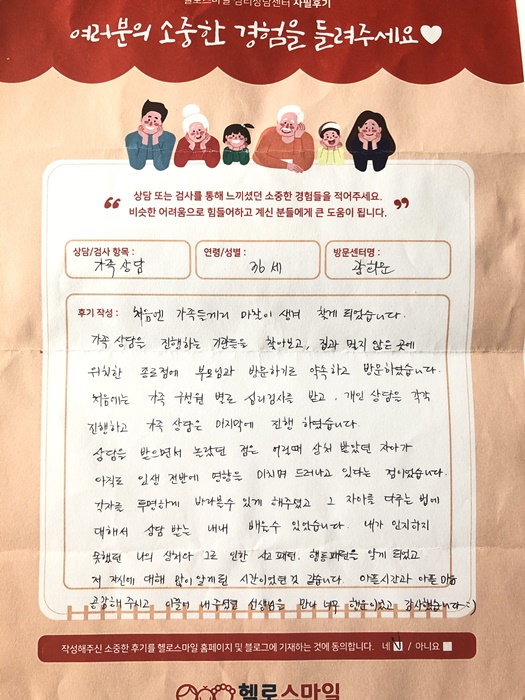 헬로스마일 심리상담센터 자필후기
여러분의 소중한 경험을 들려주세요
상담 또는 검사를 통해 느끼셨던 소중한 경험들을 적어주세요.
비슷한 어려움으로 힘들어하고 계신 분들에게 큰 도움이 됩니다.
상담/검사 항목 :
가족상담
연령/성별 :
36세
방문센터명 :
후기 작성 : 처음엔 가족들끼리 마찰이 생겨 찾게 되었습니다.
가족 상담을 진행하는 기관들을 찾아보고, 집과 멀지 않은 곳에
위치한 종로점에 부모님과 방문하기로 약속하고 방문하였습니다.
처음에는 가족 구성원 별로 심리검사를 받고, 개인 상담을 각각
진행하고 가족 상담은 마지막에 진행 하였습니다.
상담을 받으면서 놀랐던 점은 어릴때 상처 받았던 자아가
아직도 인생 전반에 영향을 미치며 드러나고 있다는 점이었습니다.
각자를 투명하게 바라볼수 있게 해주셨고 그 자아를 다루는 법에
대해서 상담 받는 내내 배울수 있었습니다. 내가 인지하지
못했던 나의 상처와 그로 인한 사고패턴, 행동패턴을 알게 되었고
저 자신에 대해 많이 알게된 시간이었던것 같습니다. 아픈시간과 아픈 마음
공감해주시고 이끌어 내주셨던 선생님을 만나 너무 행운이었고 감사했습니다 :)
작성해주신 소중한 후기를 헬로스마일 홈페이지 및 블로그에 기재하는 것에 동의합니다. 네 / 아니요
헬로스마일